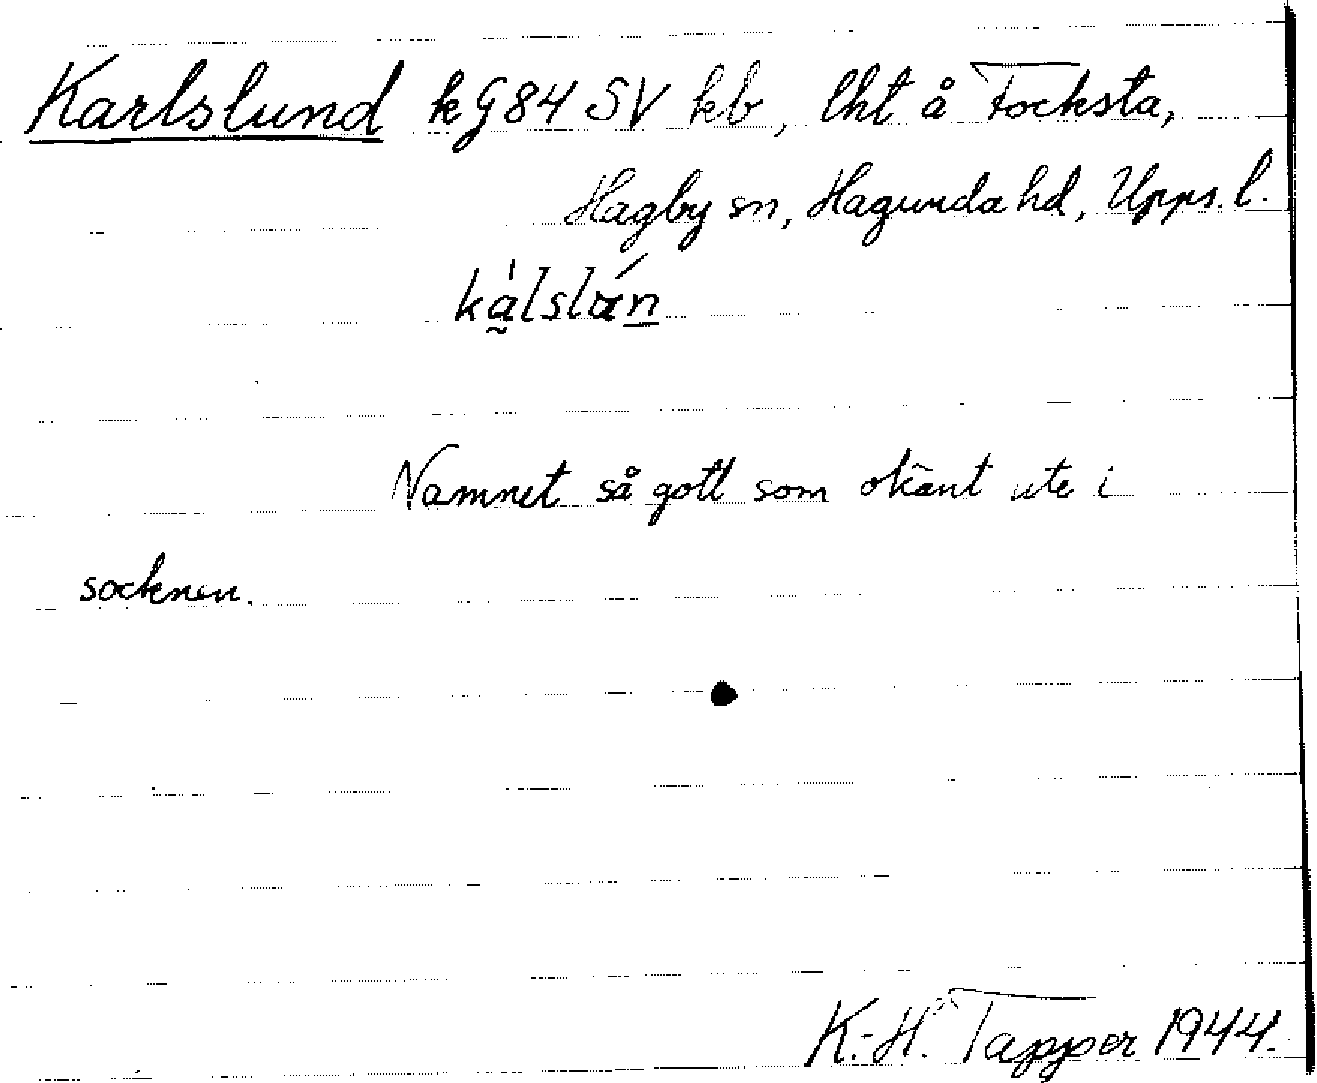 Karlslund kG84 SV kb, lht å Focksta,
Hagby sn, Hagunda hd, Upps. l.
Namnet så gott som okänt ute i
socknen.
K.-H. Tapper 1944.